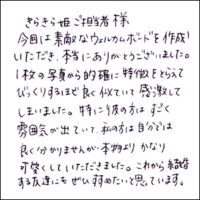 きらきら姫ご担当者様
今回は素敵なウェルカムボードを作成
いただき、本当にありがとうございました。
1枚の写真から的確に特徴をとらえて
びっくりするほど良く似ていて感激して
しまいました。特に彼の方は すごく
雰囲気が出ていて、私の方は自分では
良く分かりませんが、本物より かなり
可愛くしていただきました。これから結婚
する友達にも ぜひすすめたいと思っています。